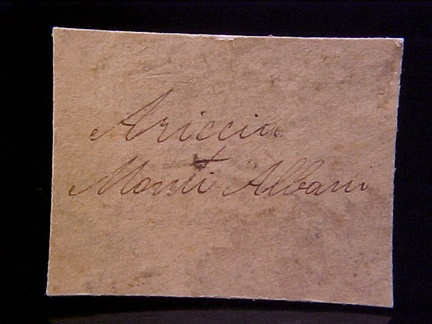 Ariccia
Monti Albani